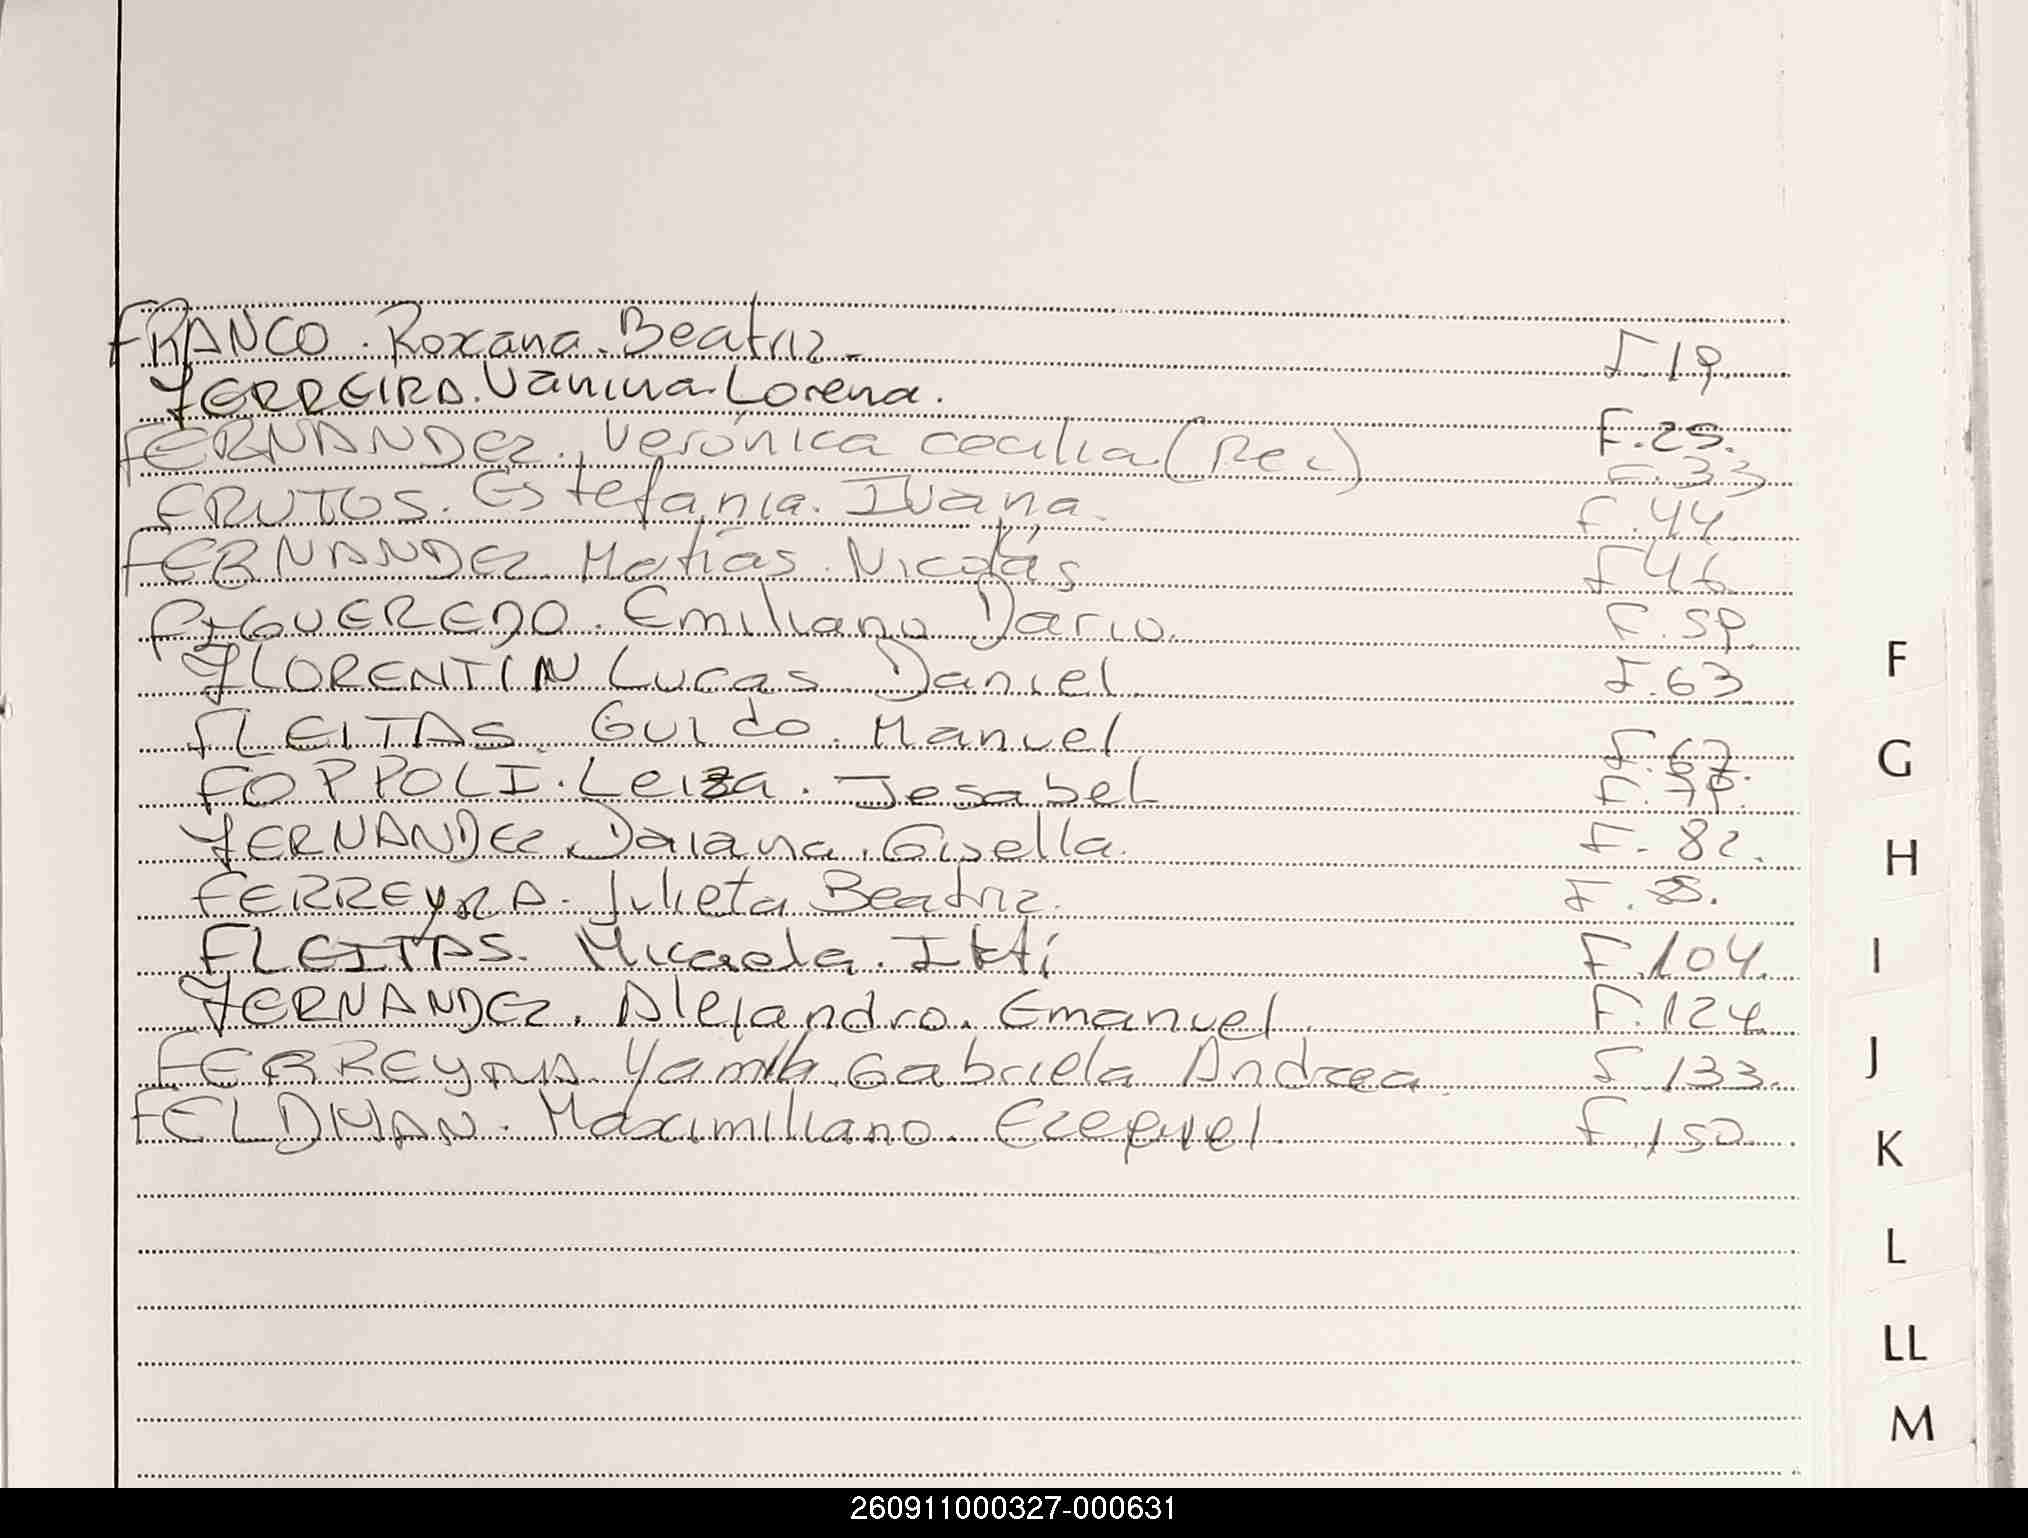 FRANCO. Roxana. Beatriz. F.19.
FERREIRA. Vanina. Lorena. F.25.
FERNANDEZ. Verónica Cecilia (Rec) F.33
FRUTOS. Estefania. Ivana. F.44
FERNANDEZ. Matías. Nicolás F46
FIGUEREDO. Emiliano Dario. F.59.
FLORENTIN Lucas Daniel. F.63
FLEITAS. Guido. Manuel F.67.
FOPPOLI. Leiza. Jesabel F.79.
FERNANDEZ. Daiana. Gisella. F.82.
FERREYRA. Julieta Beatriz. F.
FLEITAS. Micaela. Itatí F.104.
FERNANDEZ. Alejandro. Emanuel. F.124
FERREYRA. Gabriela Andrea. F.133.
FELDMAN. Maximiliano. Ezequiel. F.150.
F
G
H
I
J
K
L
LL
M
260911000327-000631